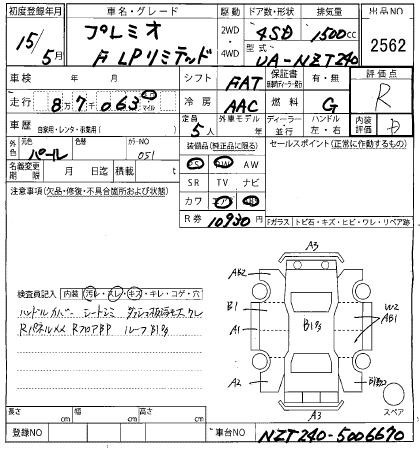 初度登録年月 車名・グレード 駆動 ドア数・形状 排気量 出品NO
15/5月 プレミオ 2WD・4WD 4SD 1500cc 2562
F LPリミテッド 型式 UA-NZT240
車検 年 月 シフト FAT 保証書 有・無 評価点
走行 8万7千063 km マイル 冷房 AAC 燃料 G R
車歴 自家用・レンタ・事業用( ) 定員 5人 外車モデル 年 ディーラー・並行 ハンドル 左・右 内装評価 D
外色 元色 パール 色替 カラーNO 051 装備品(純正品に限る) セールスポイント(正常に作動するもの)
名義変更期限 月 日迄 積載 t PS PW AW
注意事項(欠品・修復・不具合箇所および状態) SR TV ナビ
カワ エアB
R券 10930円
Fガラス トビ石・キズ・ヒビ・ワレ・リペア跡
A3
AB2
B1
A1
A2
B1
W2
AB1
A3
スペア
検査員記入 内装 汚レ・スレ・キズ・キレ・コゲ・穴
ハンドルカバー シートシミ
Rパネルメメ RフロアBP ルーフB1
長さ cm 幅 cm 高さ cm
登録NO 車台NO NZT240-5006670